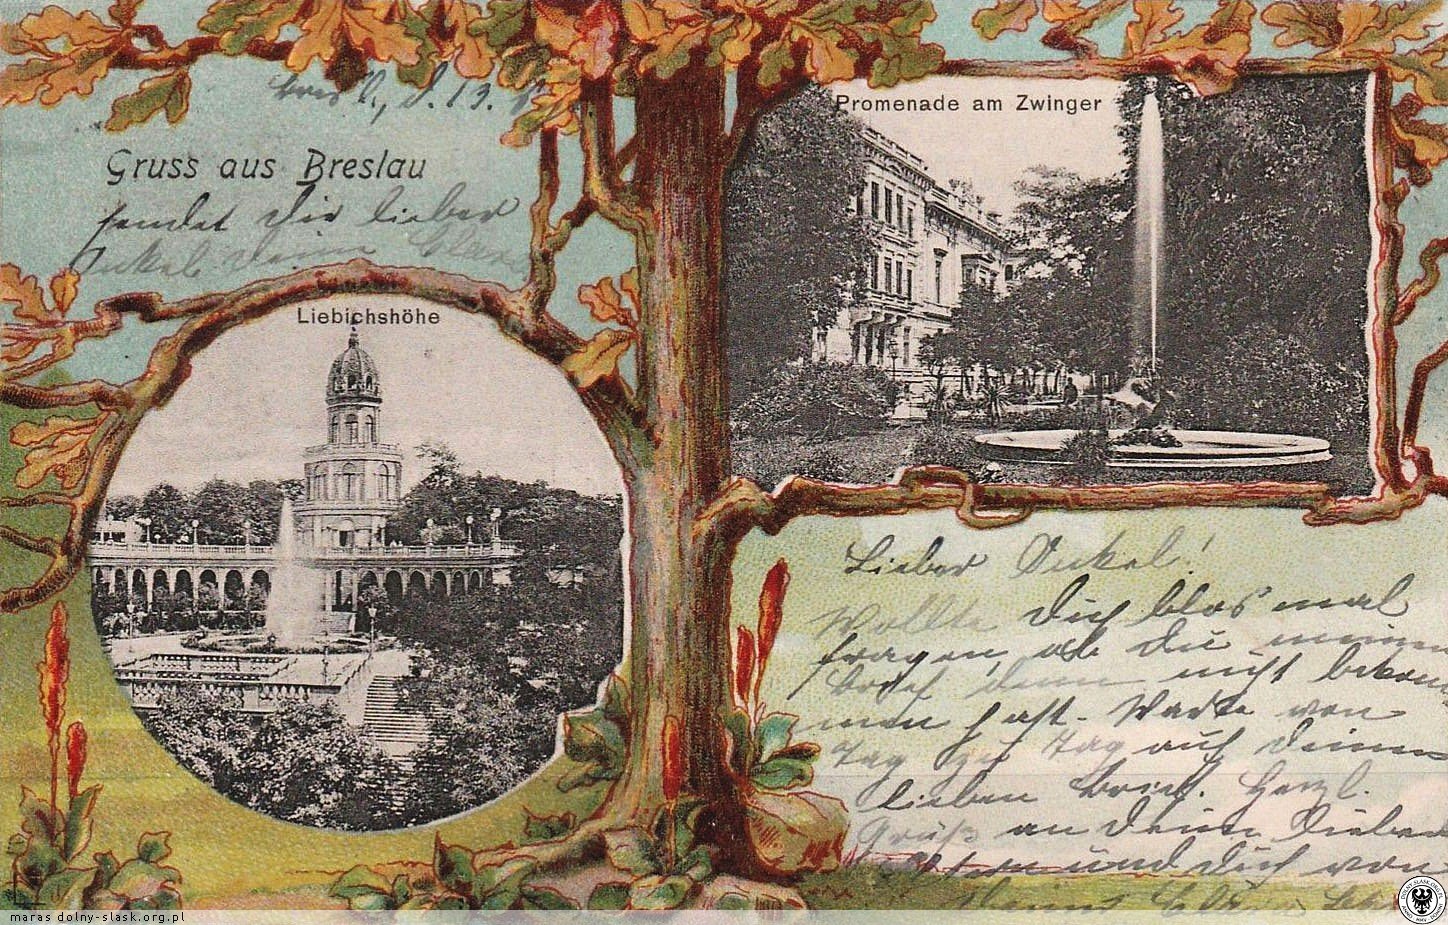 Bresl., d. 13.
Gruss aus Breslau
sendet dir lieber
Onkel deine Clara
Liebichshöhe
Promenade am Zwinger
Lieber Onkel!
Wollte dich blos mal
fragen, ob du meinen
brief denn nicht bekom
men hast. Warte von
Tag zu Tag auf deinen
lieben Brief. Herzl.
Grüß an deine Lieben
und dich von
deiner
maras dolny-slask.org.pl